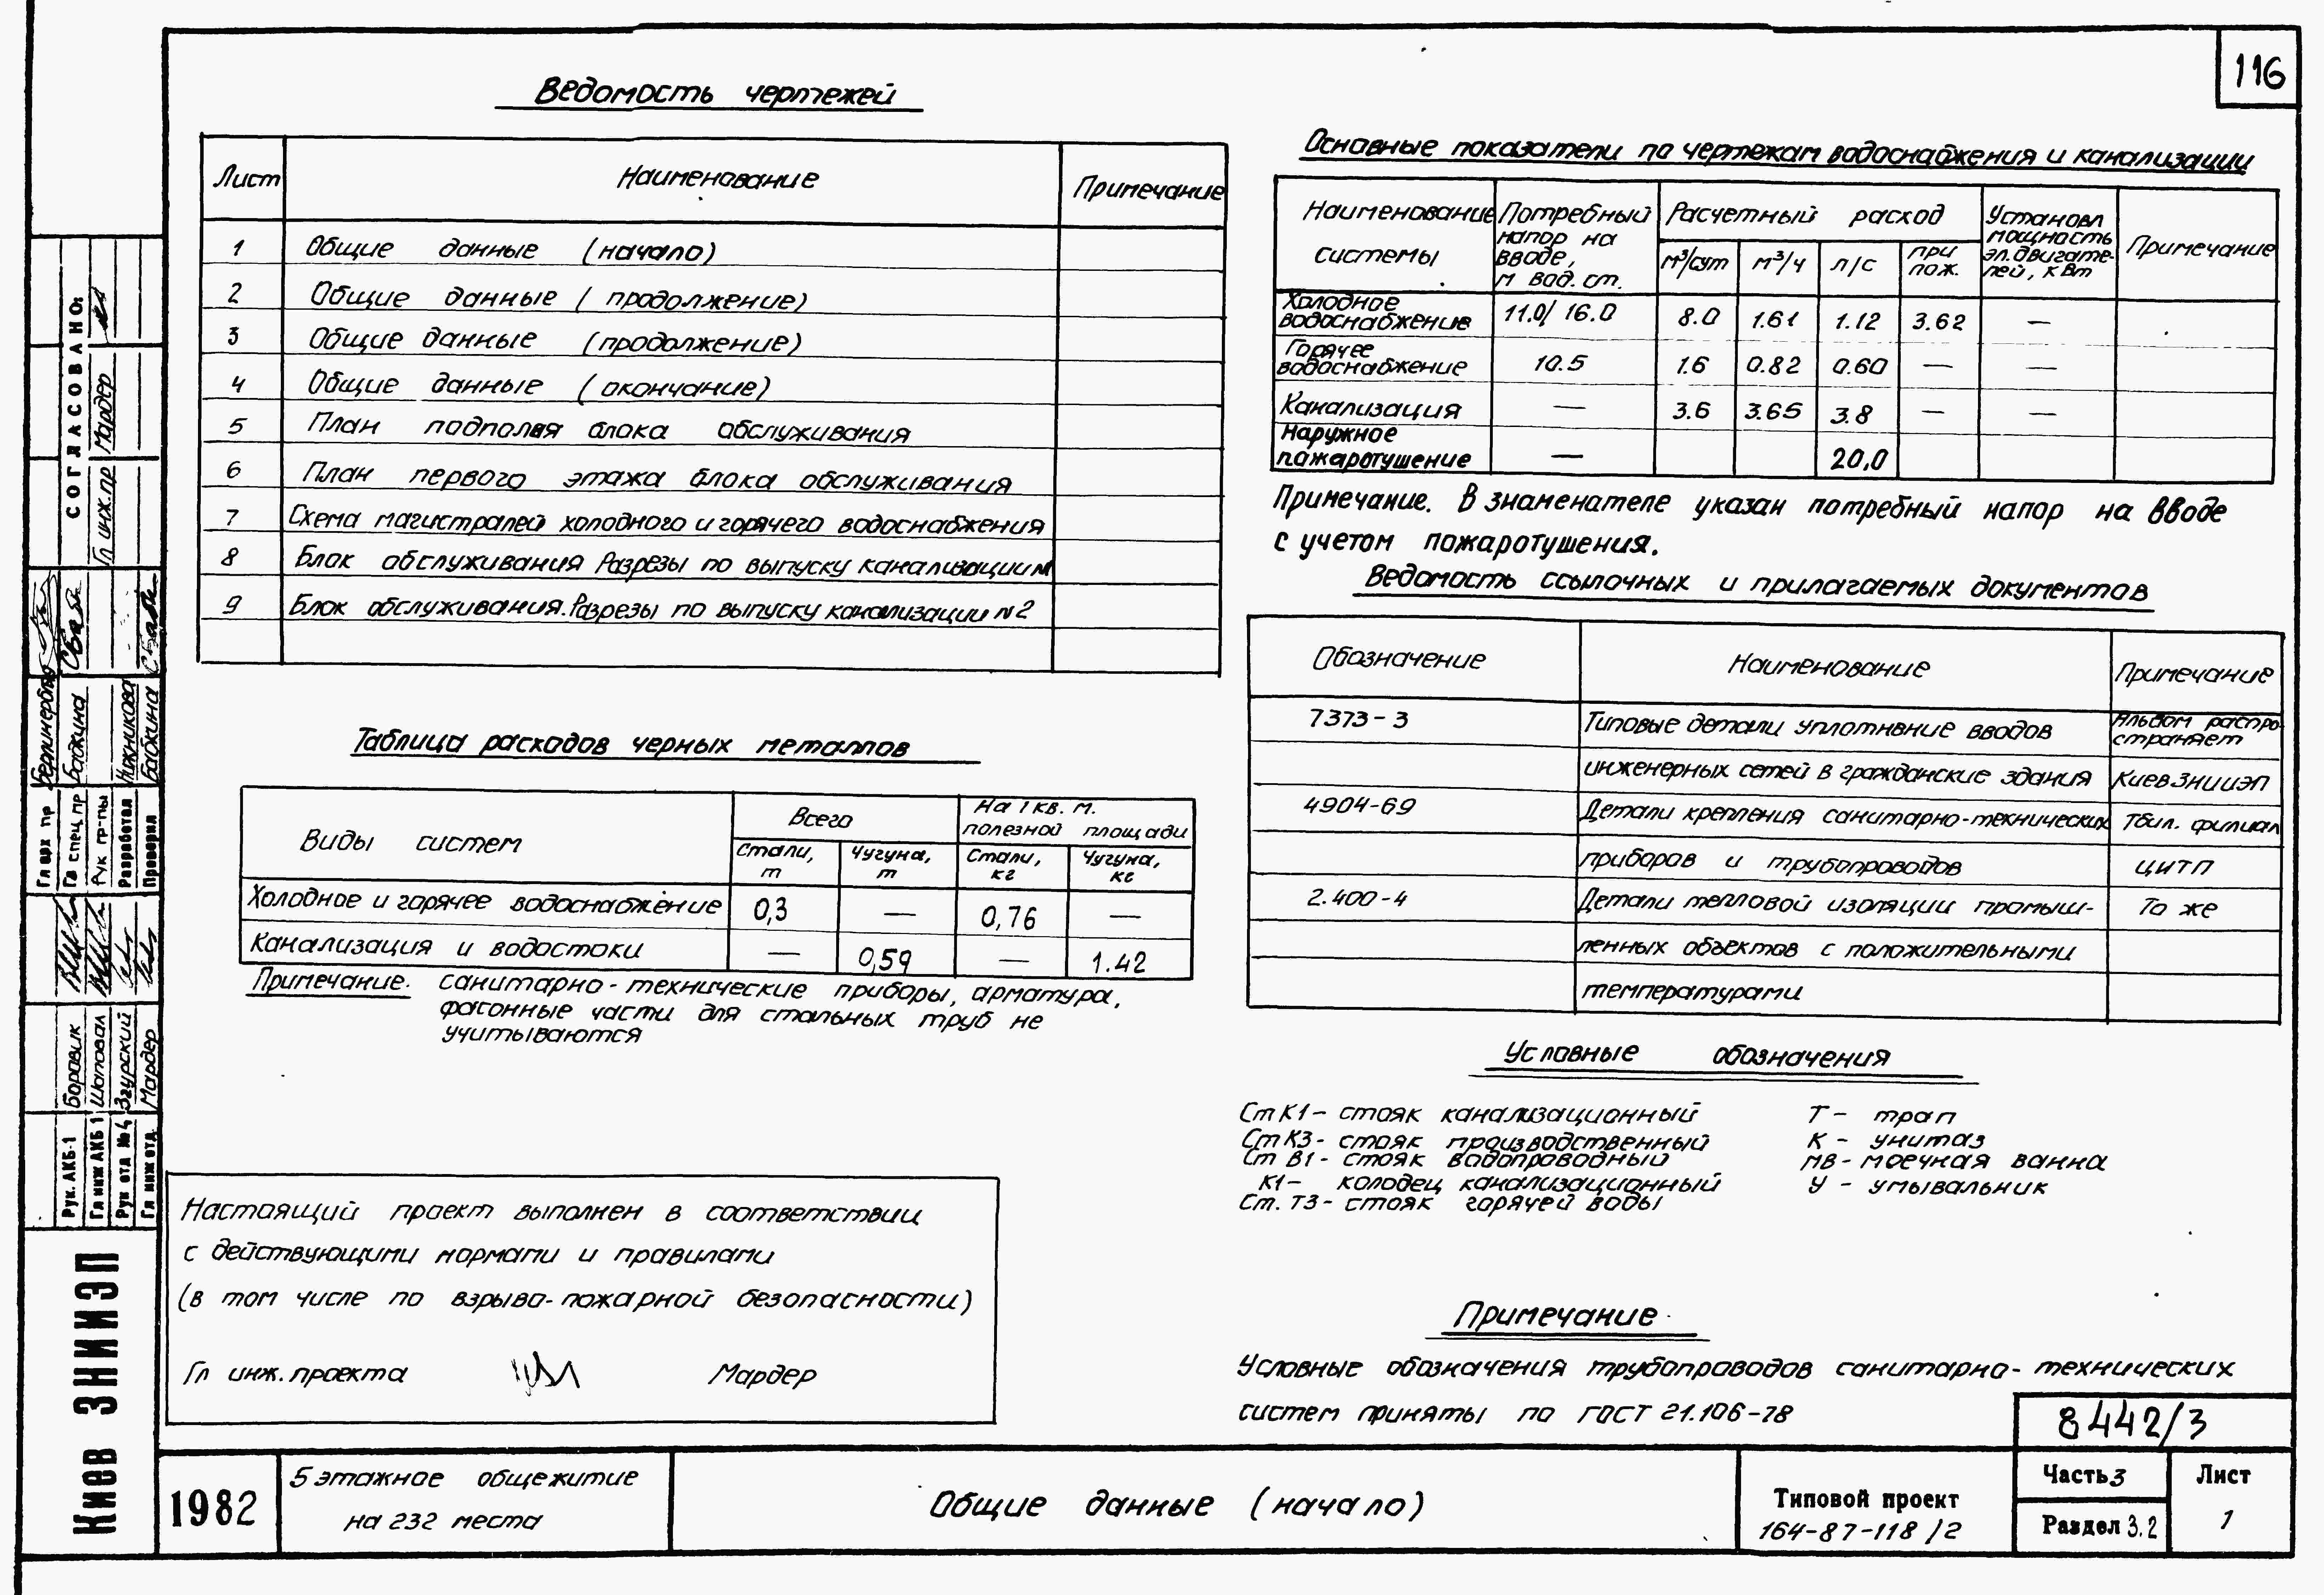 116
Ведомость чертежей
Лист Наименование Примечание
1 Общие данные (начало)
2 Общие данные (продолжение)
3 Общие данные (продолжение)
4 Общие данные (окончание)
5 План подполья блока обслуживания
6 План первого этажа блока обслуживания
7 Схема магистралей холодного и горячего водоснабжения
8 Блок обслуживания Разрезы по выпуску канализации
9 Блок обслуживания. Разрезы по выпуску канализации N2
Таблица расходов черных металлов
Виды систем
Всего
На 1 кв. м.
полезной площади
Стали, т
Чугуна, т
Стали, кг
Чугуна, кг
Холодное и горячее водоснабжение 0,3 — 0,76 —
Канализация и водостоки — 0,59 — 1.42
Примечание. санитарно-технические приборы, арматура,
фасонные части для стальных труб не
учитываются
Настоящий проект выполнен в соответствии
с действующими нормами и правилами
(в том числе по взрыво-пожарной безопасности)
Гл инж. проекта Мардер
Основные показатели по чертежам водоснабжения и канализации
Наименование системы
Потребный напор на вводе, м вод. ст.
Расчетный расход
м³/сут м³/ч л/с при пож.
Установл мощность эл.двигате-лей, кВт
Примечание
Холодное водоснабжение 11.0/16.0 8.0 1.61 1.12 3.62 —
Горячее водоснабжение 10.5 1.6 0.82 0.60 — —
Канализация — 3.6 3.65 3.8 — —
Наружное пожаротушение — 20,0
Примечание. В знаменателе указан потребный напор на вводе
с учетом пожаротушения.
Ведомость ссылочных и прилагаемых документов
Обозначение Наименование Примечание
7373-3 Типовые детали уплотнение вводов Альбом распро-страняет
инженерных сетей в гражданские здания КиевЗНИИЭП
4904-69 Детали крепления санитарно-технических Тбил. филиал
приборов и трубопроводов ЦИТП
2.400-4 Детали тепловой изоляции промыш- То же
ленных объектов с положительными
температурами
Условные обозначения
Ст К1- стояк канализационный
Ст К3- стояк производственный
Ст В1- стояк водопроводный
К1- колодец канализационный
Ст. Т3- стояк горячей воды
Т- трап
К- унитаз
МВ- моечная ванна
У- умывальник
Примечание
Условные обозначения трубопроводов санитарно-технических
систем приняты по ГОСТ 21.106-78
8442/3
1982
5 этажное общежитие
на 232 места
Общие данные (начало)
Типовой проект
164-87-118/2
Часть 3
Раздел 3.2
Лист
1
СОГЛАСОВАНО:
Гл инж. пр Мардер
Гл арх пр
Гл спец пр Бабкина
Рук гр-пы
Разработал Нижникова
Проверил Бабкина
Рук. АКБ-1 Боровик
Гл инж АКБ 1 Шаповал
Рук отд №4 Згурский
Гл инж отд Мардер
Киев ЗНИИЭП